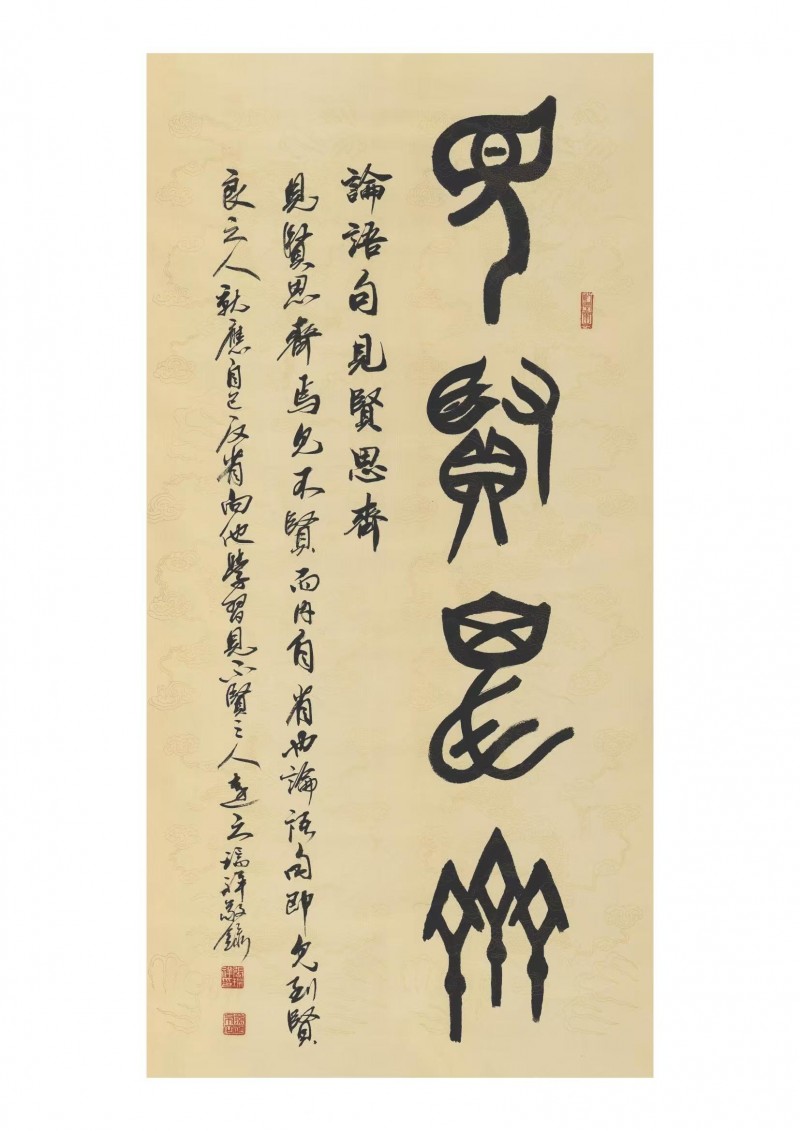 見賢思齊
論語句見賢思齊
見賢思齊焉見不賢而內自省也論語句即見到賢
良之人就應自己反省向他學習見不賢之人遠之瑞祥敬錄